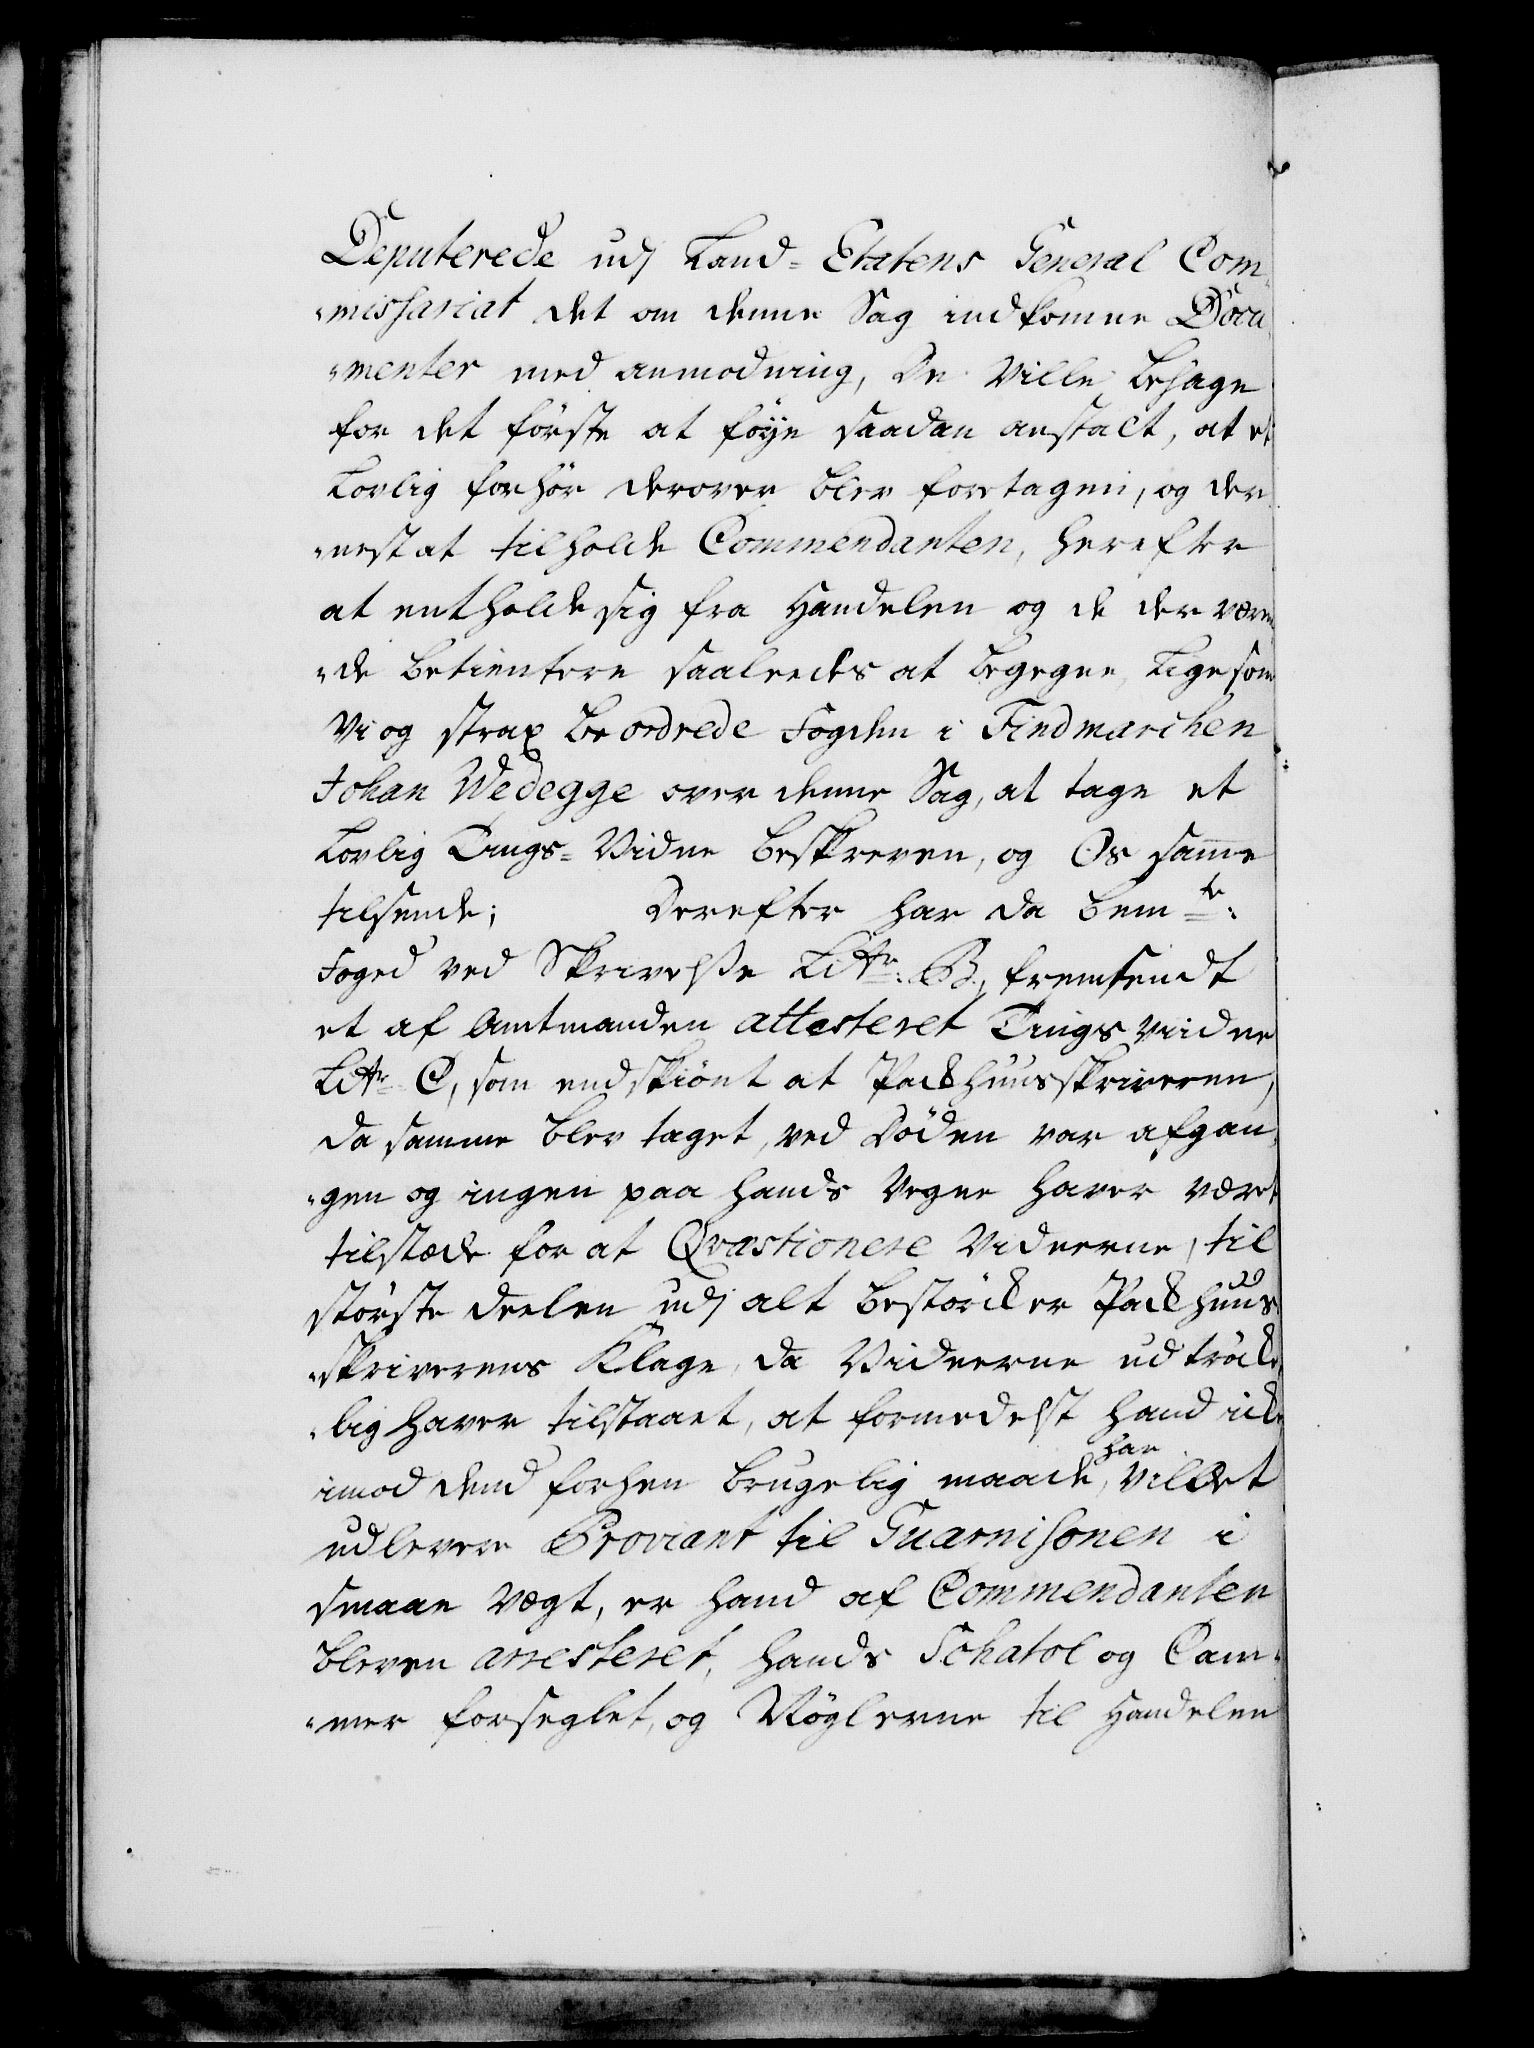 Deputerede udj Land-Etatens General Com-
-missariat det om denne Sag indkomne Docu-
-menter med anmodning, De Ville behage
for det förste at föye saadan anstalt, at et
Lovlig forhör derover blev foretagen, og der-
-nest at tilholde Commendanten, herefter
at entholde sig fra Handelen og de der væren-
-de betientere saaleedes at begegne, Ligesom
Vi og strax beordrede Fogden i Findmarchen
Johan Wedegge over denne Sag, at tage et
Lovlig Tings-Vidne beskreven, og Os samme
tilsende; Derefter har da bem.te:
Foged ved Skrivelse Litr: B, fremsendt
et af Amtmanden attesteret Tings vidne
Litr: C, som endskiönt at Packhuusskriveren,
da samme blev taget, ved Döden var afgan-
-gen og ingen paa hands Vegne haver været
tilstæde for at Qvæstionere Vidnerne, til
störste deelen udj alt bestörcker Packhuus-
-skriverens Klage, da Vidnerne udtröcke-
-lig haver tilstaaet, at formedelst hand icke
imod dend forhen brugelig maade, har villet
udlevere Proviant til Guarnisonen i
smaae Vægt, er hand af Commendanten
bleven arresteret, hands Schatol og Cam-
-mer forseglet, og Nöglerne til Handelen